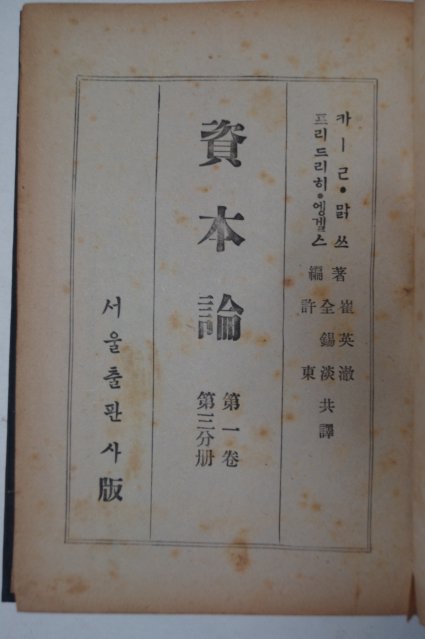 카ーㄹ・맑쓰 著
프리드리히・엥겔스 編
崔英澈
全錫淡 共譯
許東
資本論
第一卷
第三分册
서울출판사版